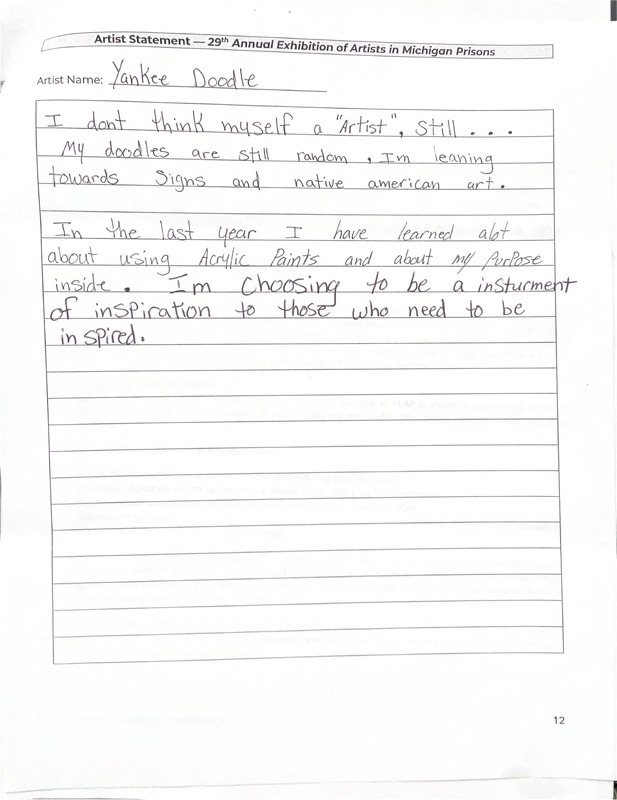 Artist Statement — 29th Annual Exhibition of Artists in Michigan Prisons
Artist Name: Yankee Doodle
I dont think myself a "Artist", still . . .
My doodles are still random , Im leaning
towards Signs and native american art.
In the last year I have learned alot
about using Acrylic Paints and about my PurPose
inside. Im Choosing to be a insturment
of inspiration to those who need to be
inspired.
12